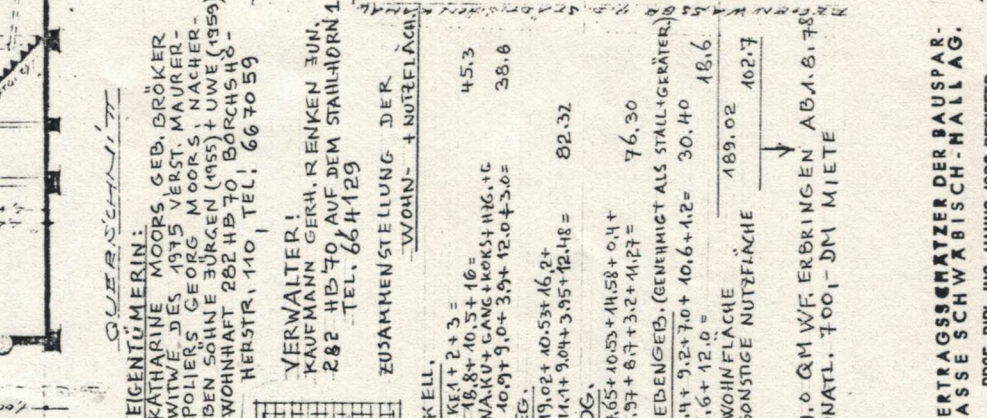 QUERSCHNITT
EIGENTÜMERIN:
KATHARINE MOORS, GEB. BRÖKER
WITWE DES 1975 VERST. MAURER-
POLIERS GEORG MOORS. NACHER-
BEN SÖHNE JÜRGEN (1955) + UWE (1959)
WOHNHAFT 282 HB 70 BORCHSHÖ-
HERSTR. 110, TEL: 667059
VERWALTER!
KAUFMANN GERH. RENKEN JUN.
282 HB 70, AUF DEM STAHLHORN 1
TEL. 664129
ZUSAMMENSTELLUNG DER
WOHN- + NUTZFLÄCH.
KELL.
KE.1 + 2 + 3 =
18,8 + 10,5 + 16 = 45.3
WA.KÜ + GANG + KOKS + HZG. + G
10.9 + 9,0 + 3,9 + 12.0 + 3.0 = 38.8
EG.
19,02 + 10.53 + 16,2 +
11.1 + 9.04 + 3.95 + 12.48 = 82.32
OG.
,65 + 10.53 + 14,58 + 0,4 +
,97 + 8.7 + 3.2 + 11,27 = 76.30
EBENGEB. (GENEHMIGT ALS STALL + GERÄTER.)
,4 + 9.2 + 7.0 + 10,6 + 1,2 = 30.40
,6 + 12.0 = 18.6
WOHNFLÄCHE 189.02
SONSTIGE NUTZFLÄCHE 102.7
,0 QM WF. ERBRINGEN AB 1.8.78
NATL. 700,- DM MIETE
ERTRAGSSCHÄTZER DER BAUSPAR-
ASSE SCHWÄBISCH-HALL AG.